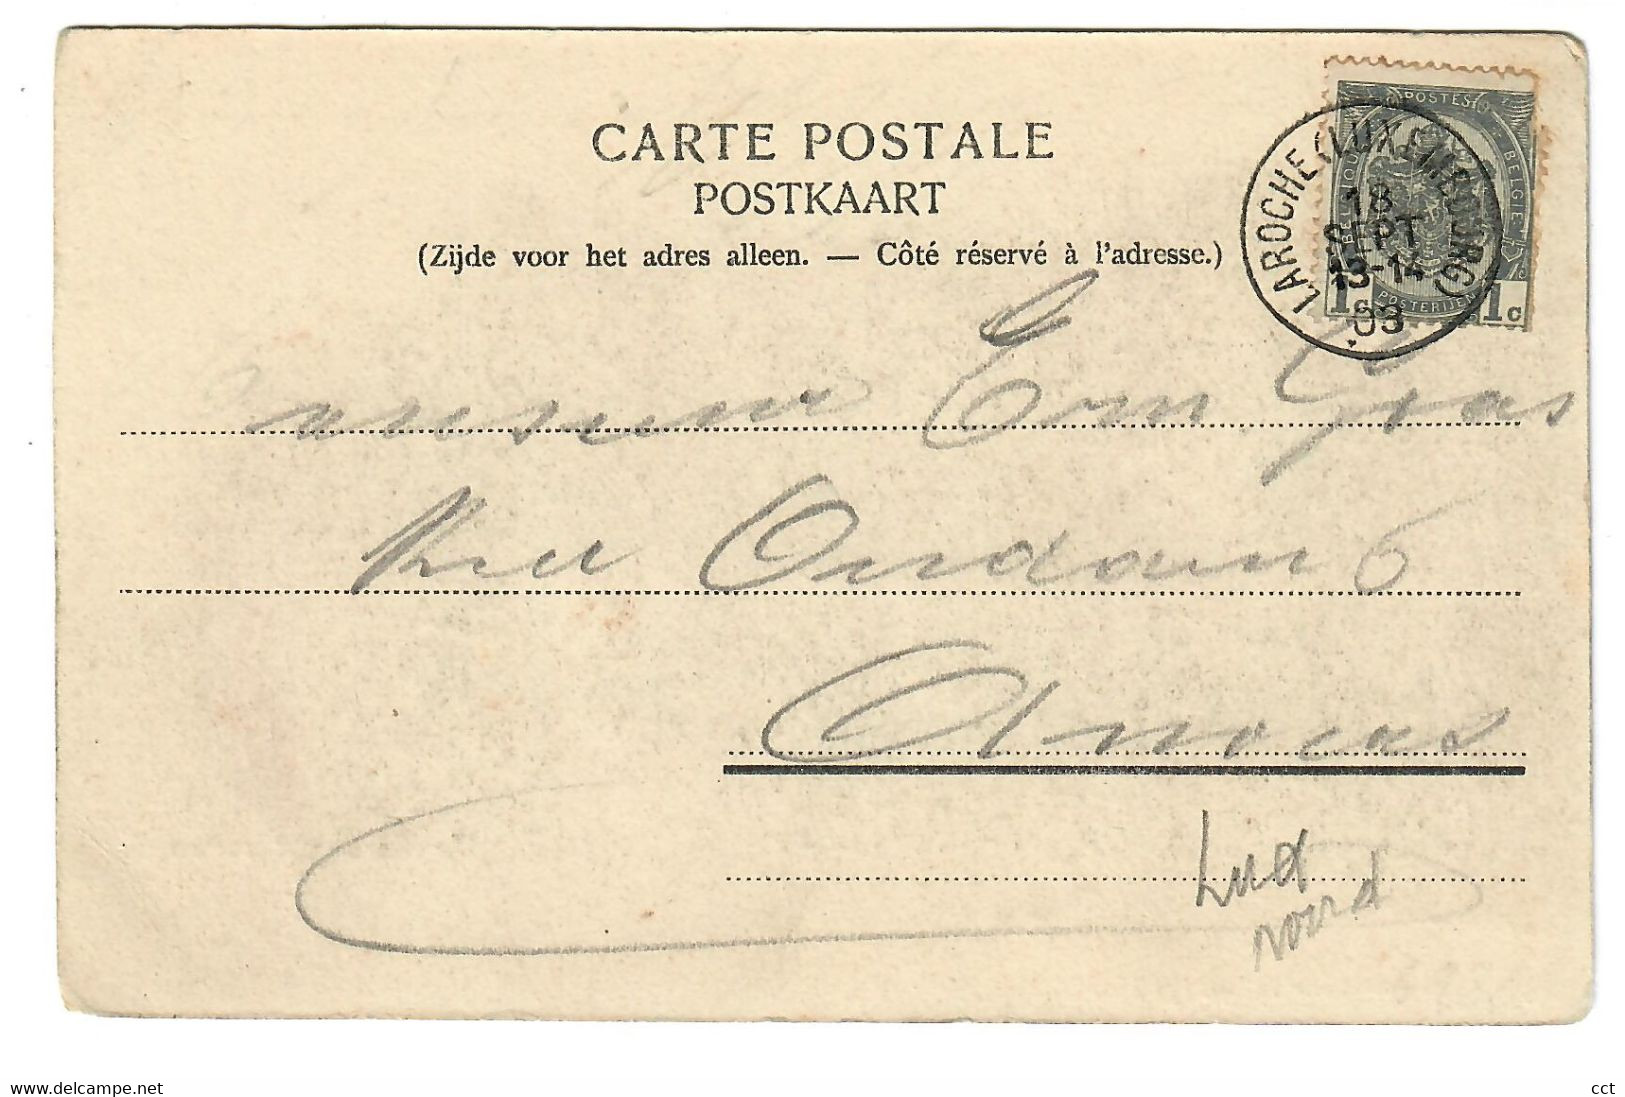 CARTE POSTALE
POSTKAART
(Zijde voor het adres alleen. — Côté réservé à l'adresse.)
POSTES
BELGIQUE
BELGIE
POSTERIJEN
1c 1c
LAROCHE (LUXEMBOURG)
18
SEPT
13-14
03
Em. Gras
6
Anvers
Lux
noord
www.delcampe.net
cct